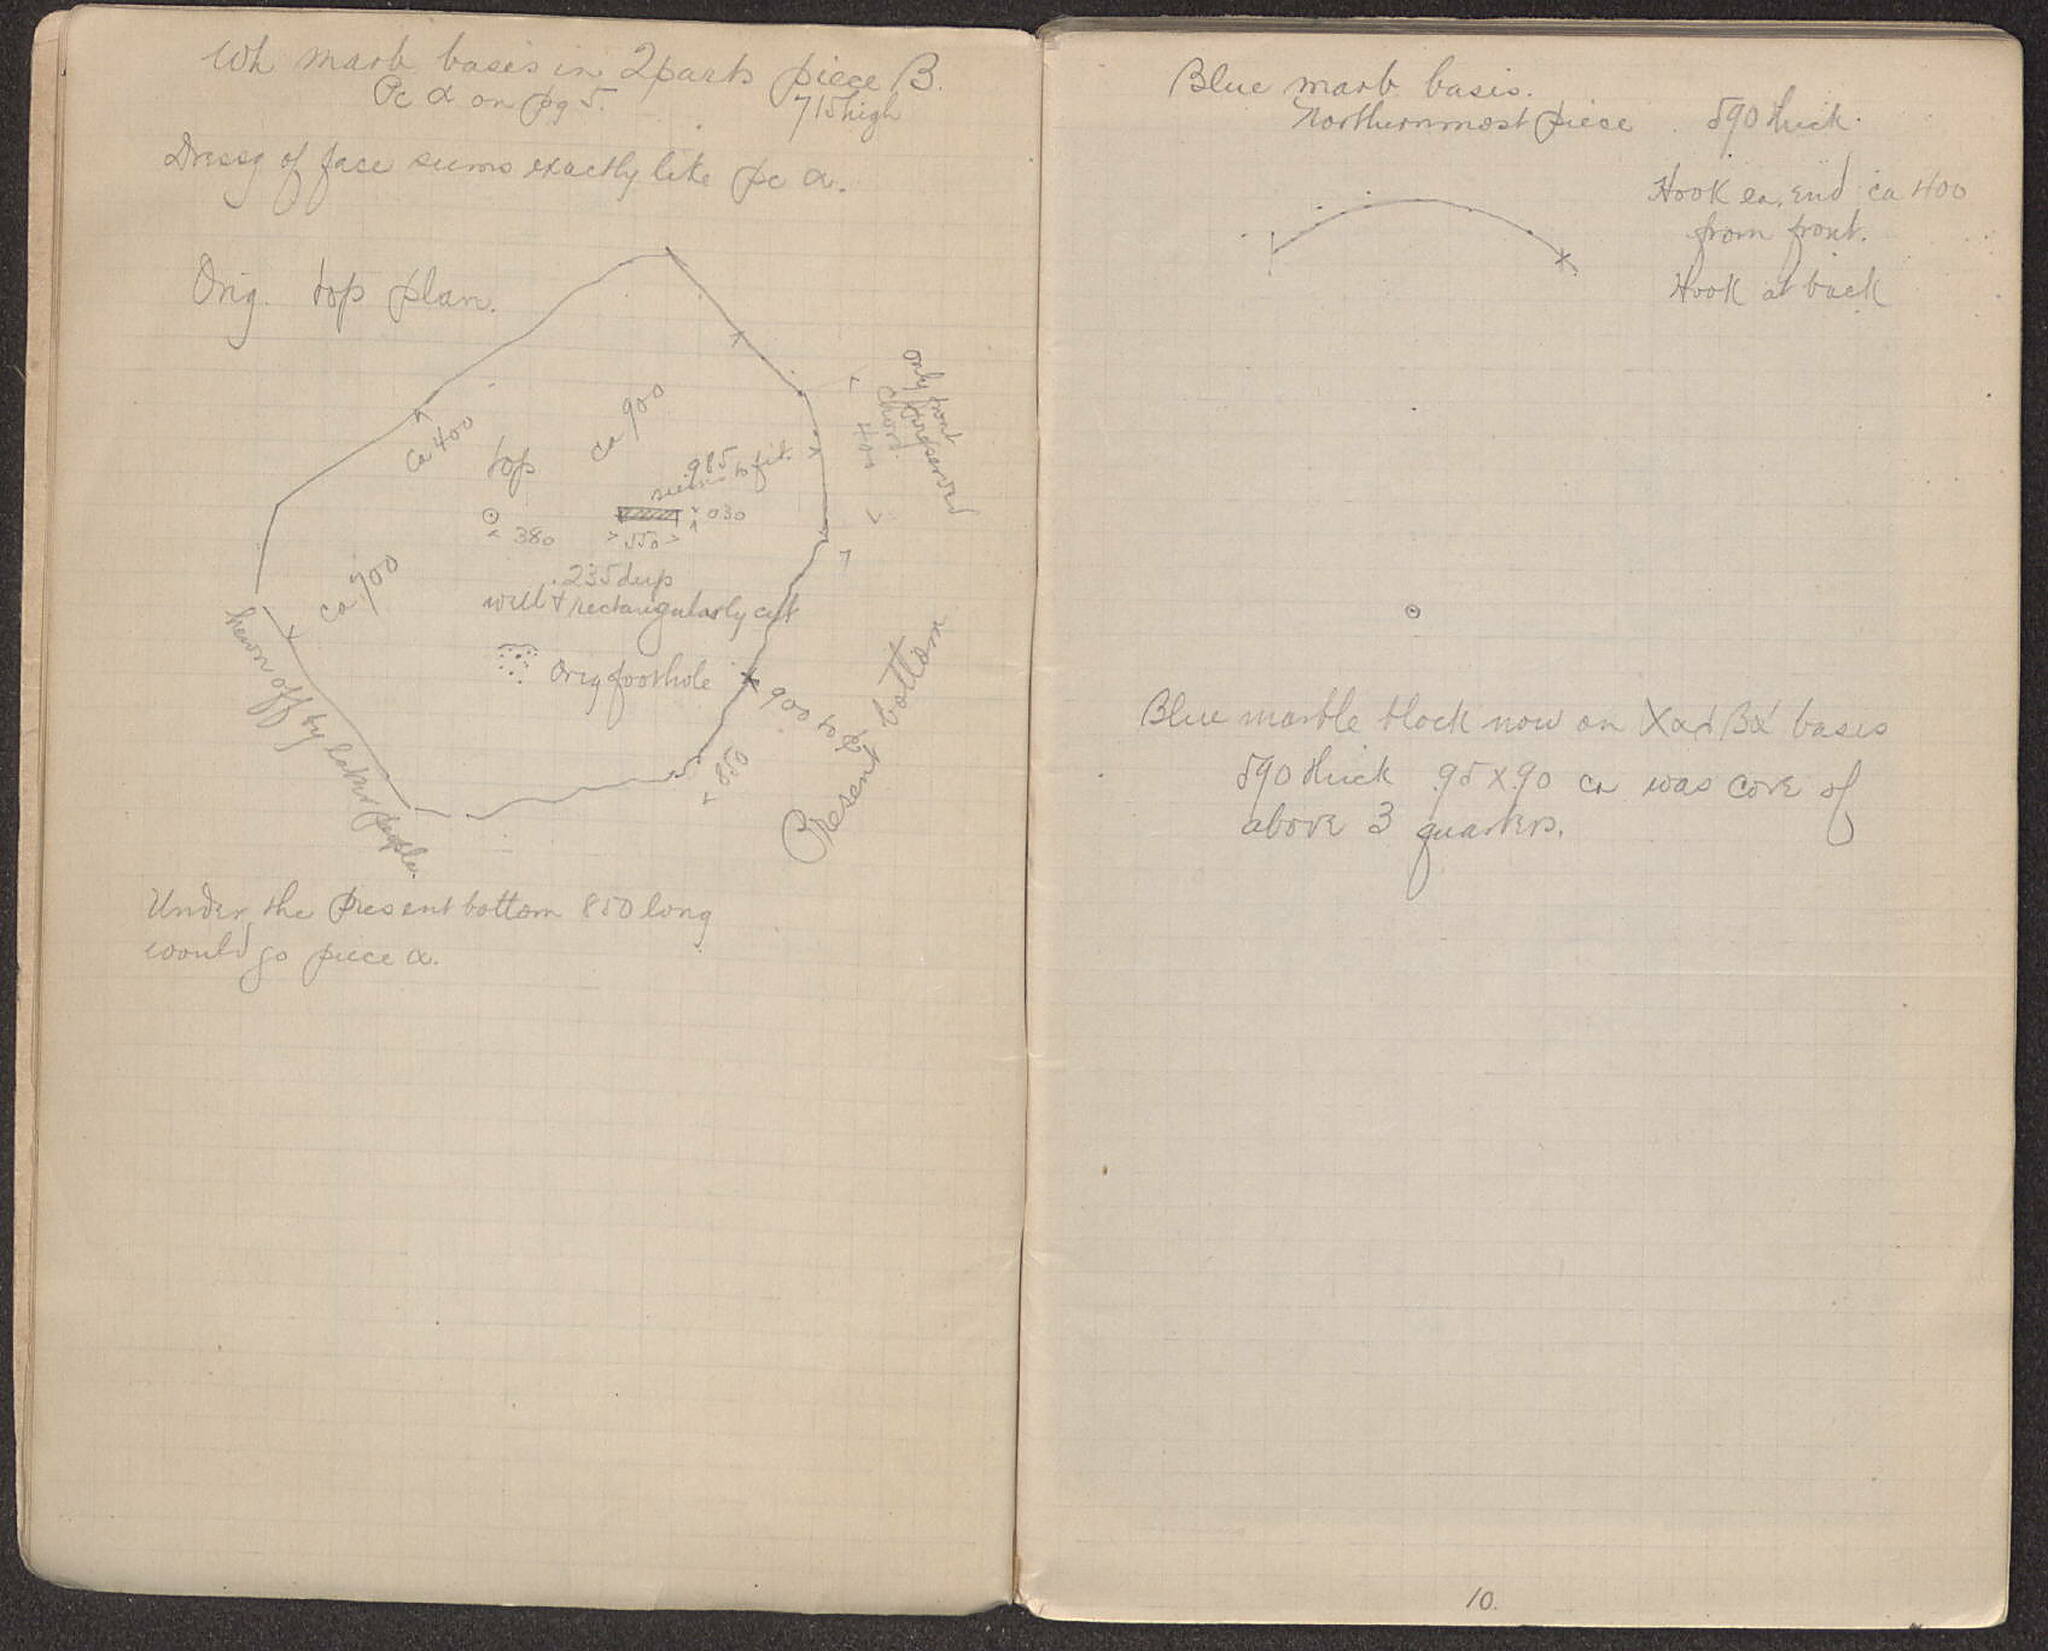 Wh marb basis in 2 parts piece B.
Pc α on pg 5.
715 high
Dressg of face seems exactly like pc α.
Orig. top plan.
only front
preserved
chord
400
ca 400
top
ca 900
.985
seems to fit.
030
380
550
.235 deep
well + rectangularly cut
ca 700
hewn off by later people.
Orig foothole
900 to
850
Present bottom
Under the present bottom 850 long
would go piece α.
Blue marb basis.
Northernmost piece 590 thick.
Hook ea. end ca 400
from front.
Hook at back
Blue marble block now on bases
590 thick .95 x .90 ca was core of
above 3 quarters.
10.